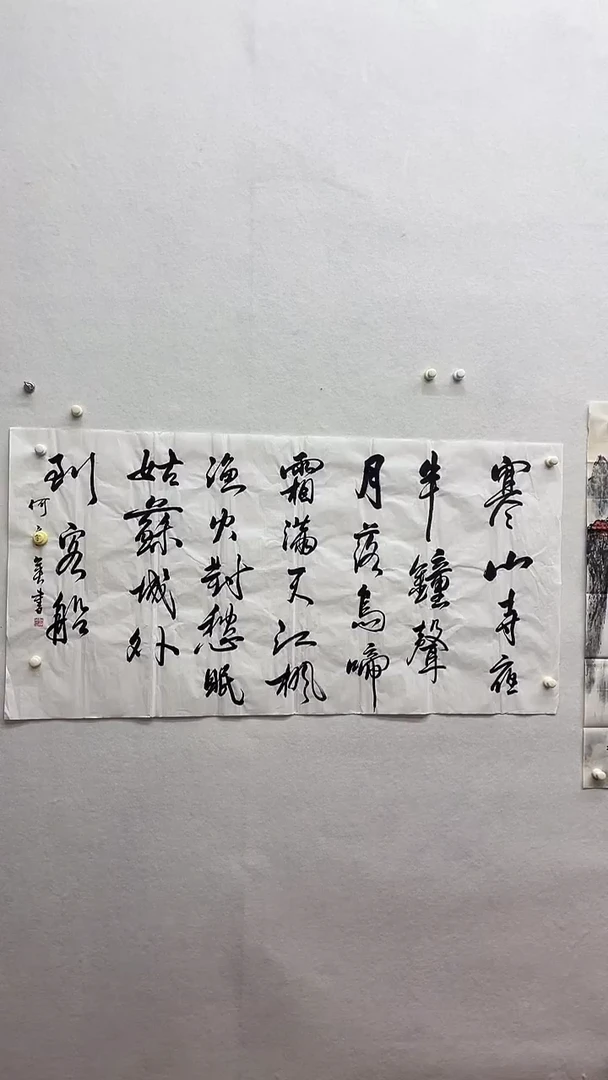 寒山寺夜
半鐘聲
月落烏啼
霜滿天江楓
漁火對愁眠
姑蘇城外
到客船
何 書